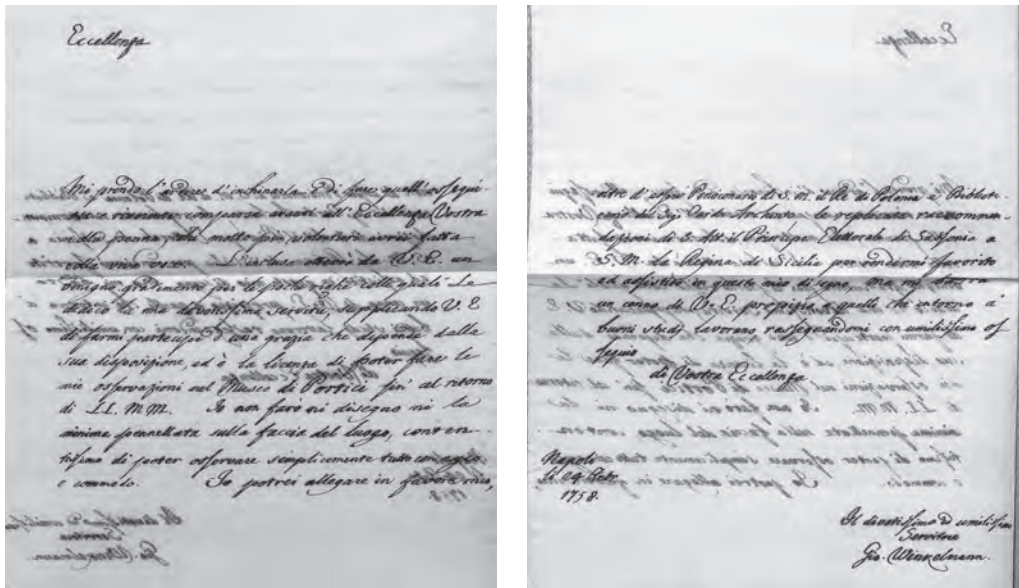 Eccellenza
Mi prendo l'ardire d'inchinarla e di fare quell'ossequi-
riverente comparsa avanti all'Eccellenza Vostra
colla penna, che molto più volentieri avrei fatta
colla viva voce. da V. E. un
benigno gradimento per le poche righe colle quali Le
dedico la mia devotissima servitù, supplicando V. E.
di farmi partecipe d'una grazia che dipende dalla
sua disposizione, ed è la licenza di poter fare le
mie osservazioni nel Museo di Portici fin' al ritorno
di LL. MM. Io non farò ni disegno ni la
minima pennellata sulla faccia del luogo, conten-
tissimo di poter osservare semplicemente tutto con agio
e commodo. Io potrei allegare in favor mio,
oltre d'esser Pensionario di S. M. il Re di Polonia e Bibliote-
cario del Sig. Card. Archinto, le replicate raccomman-
dazioni di S. Alt. il Principe Elettorale di Sassonia a
S. M. la Regina di Sicilia per rendermi favorito
ed assistito in questo mio disegno, ma mi
un cenno di V. E. propizia a quelli che intorno a'
buoni studj lavorano rassegnandomi con umilissimo os-
sequio
di Vostra Eccellenza
Napoli
li 24 Febr.
1758.
Il divotissimo ed umilissimo
Servitore
Gio. Winkelmann.